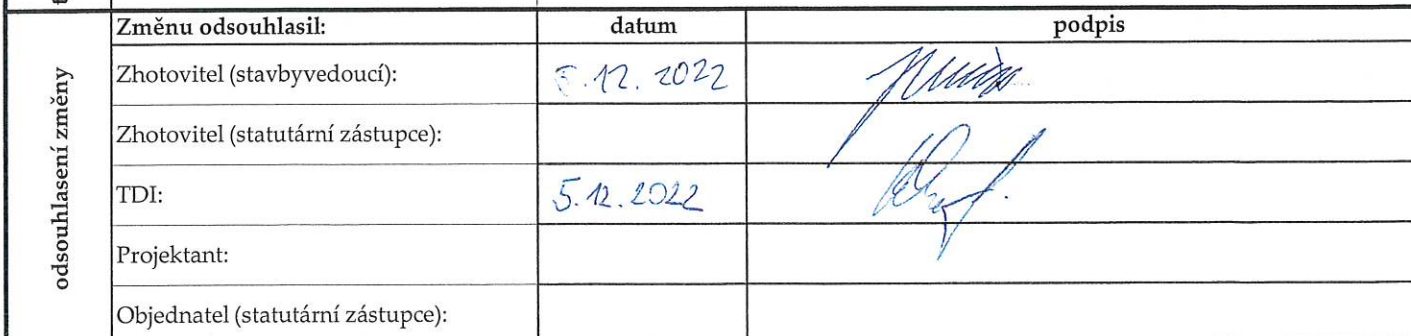 Změnu odsouhlasil: datum podpis
odsouhlasení změny
Zhotovitel (stavbyvedoucí): 5.12. 2022
Zhotovitel (statutární zástupce):
TDI: 5.12.2022
Projektant:
Objednatel (statutární zástupce):